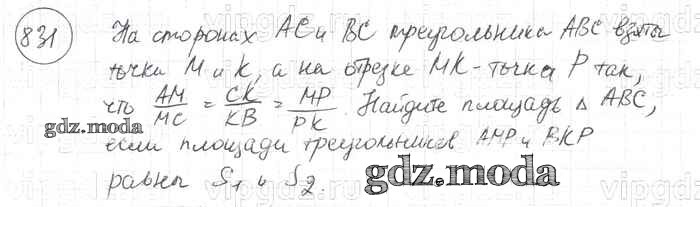 831 На сторонах AC и BC треугольника ABC взяты
точки M и K, а на отрезке MK - точка P так,
что AM/MC = CK/KB = MP/PK. Найдите площадь △ ABC,
gdz.moda
если площади треугольников AMP и BKP
gdz.moda
равны S₁ и S₂.